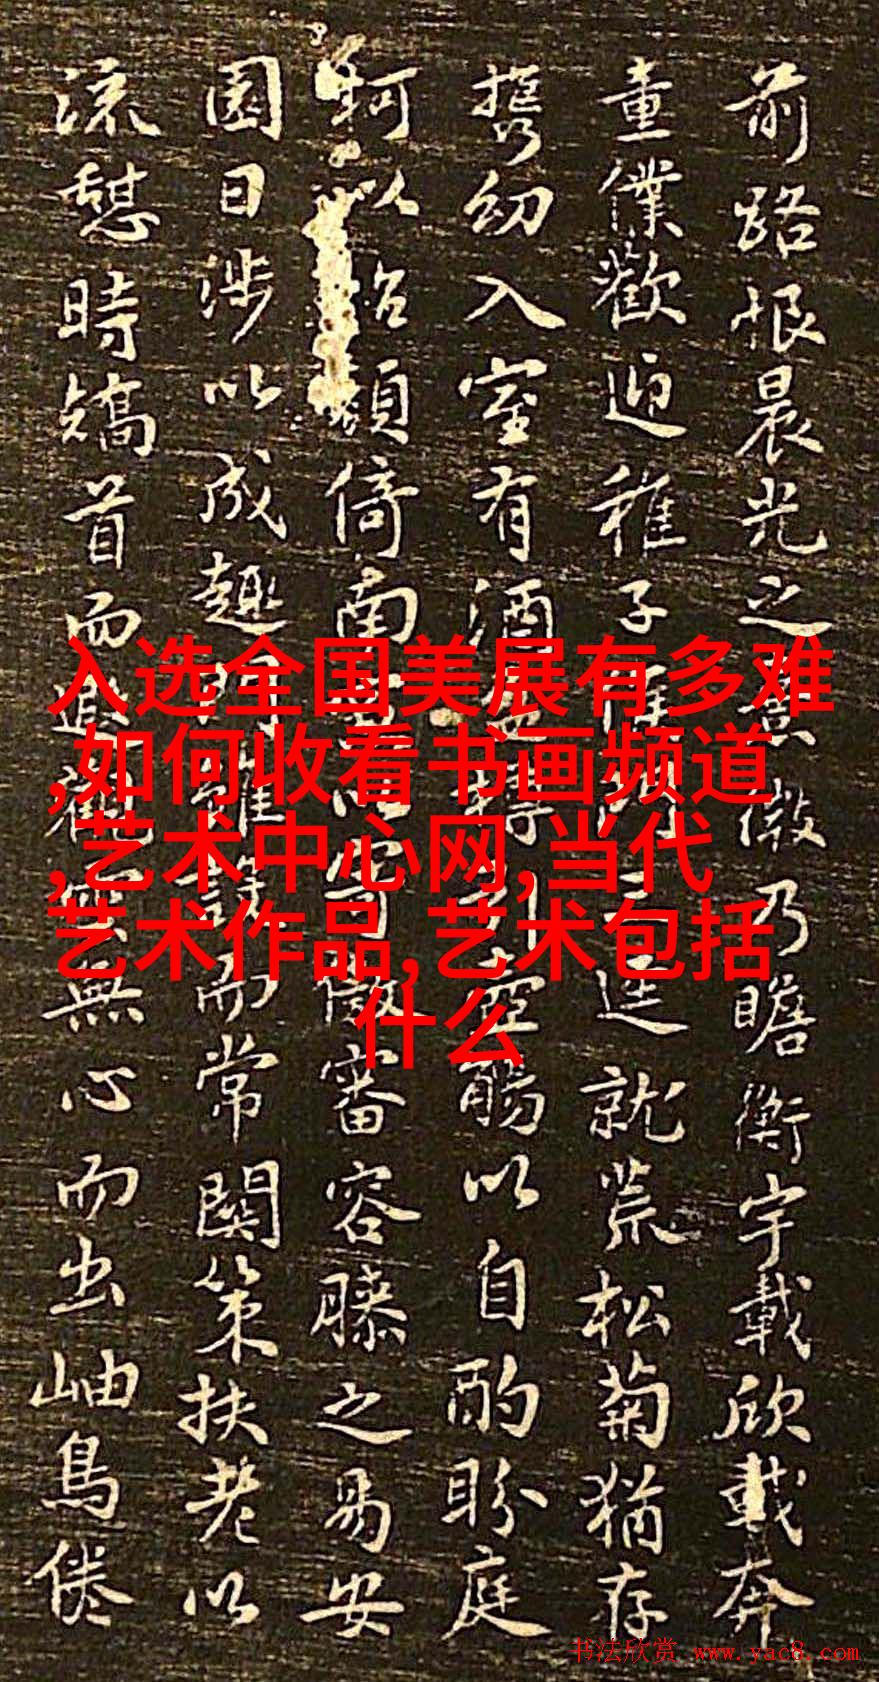 前路恨晨光之微乃瞻衡宇載欣載奔
童僕歡迎稚子三逕就荒松菊猶存
携幼入室有酒盈樽引觴以自酌盼庭
柯以怡顏倚南窗以寄傲審容膝之易安
園日涉以成趣門雖設而常關策扶老以
流憩時矯首而遐觀無心而出岫鳥倦
入选全国美展有多难
,如何收看书画频道
,艺术中心网,当代
艺术作品,艺术包括
什么
书法欣赏 www.yac8.com